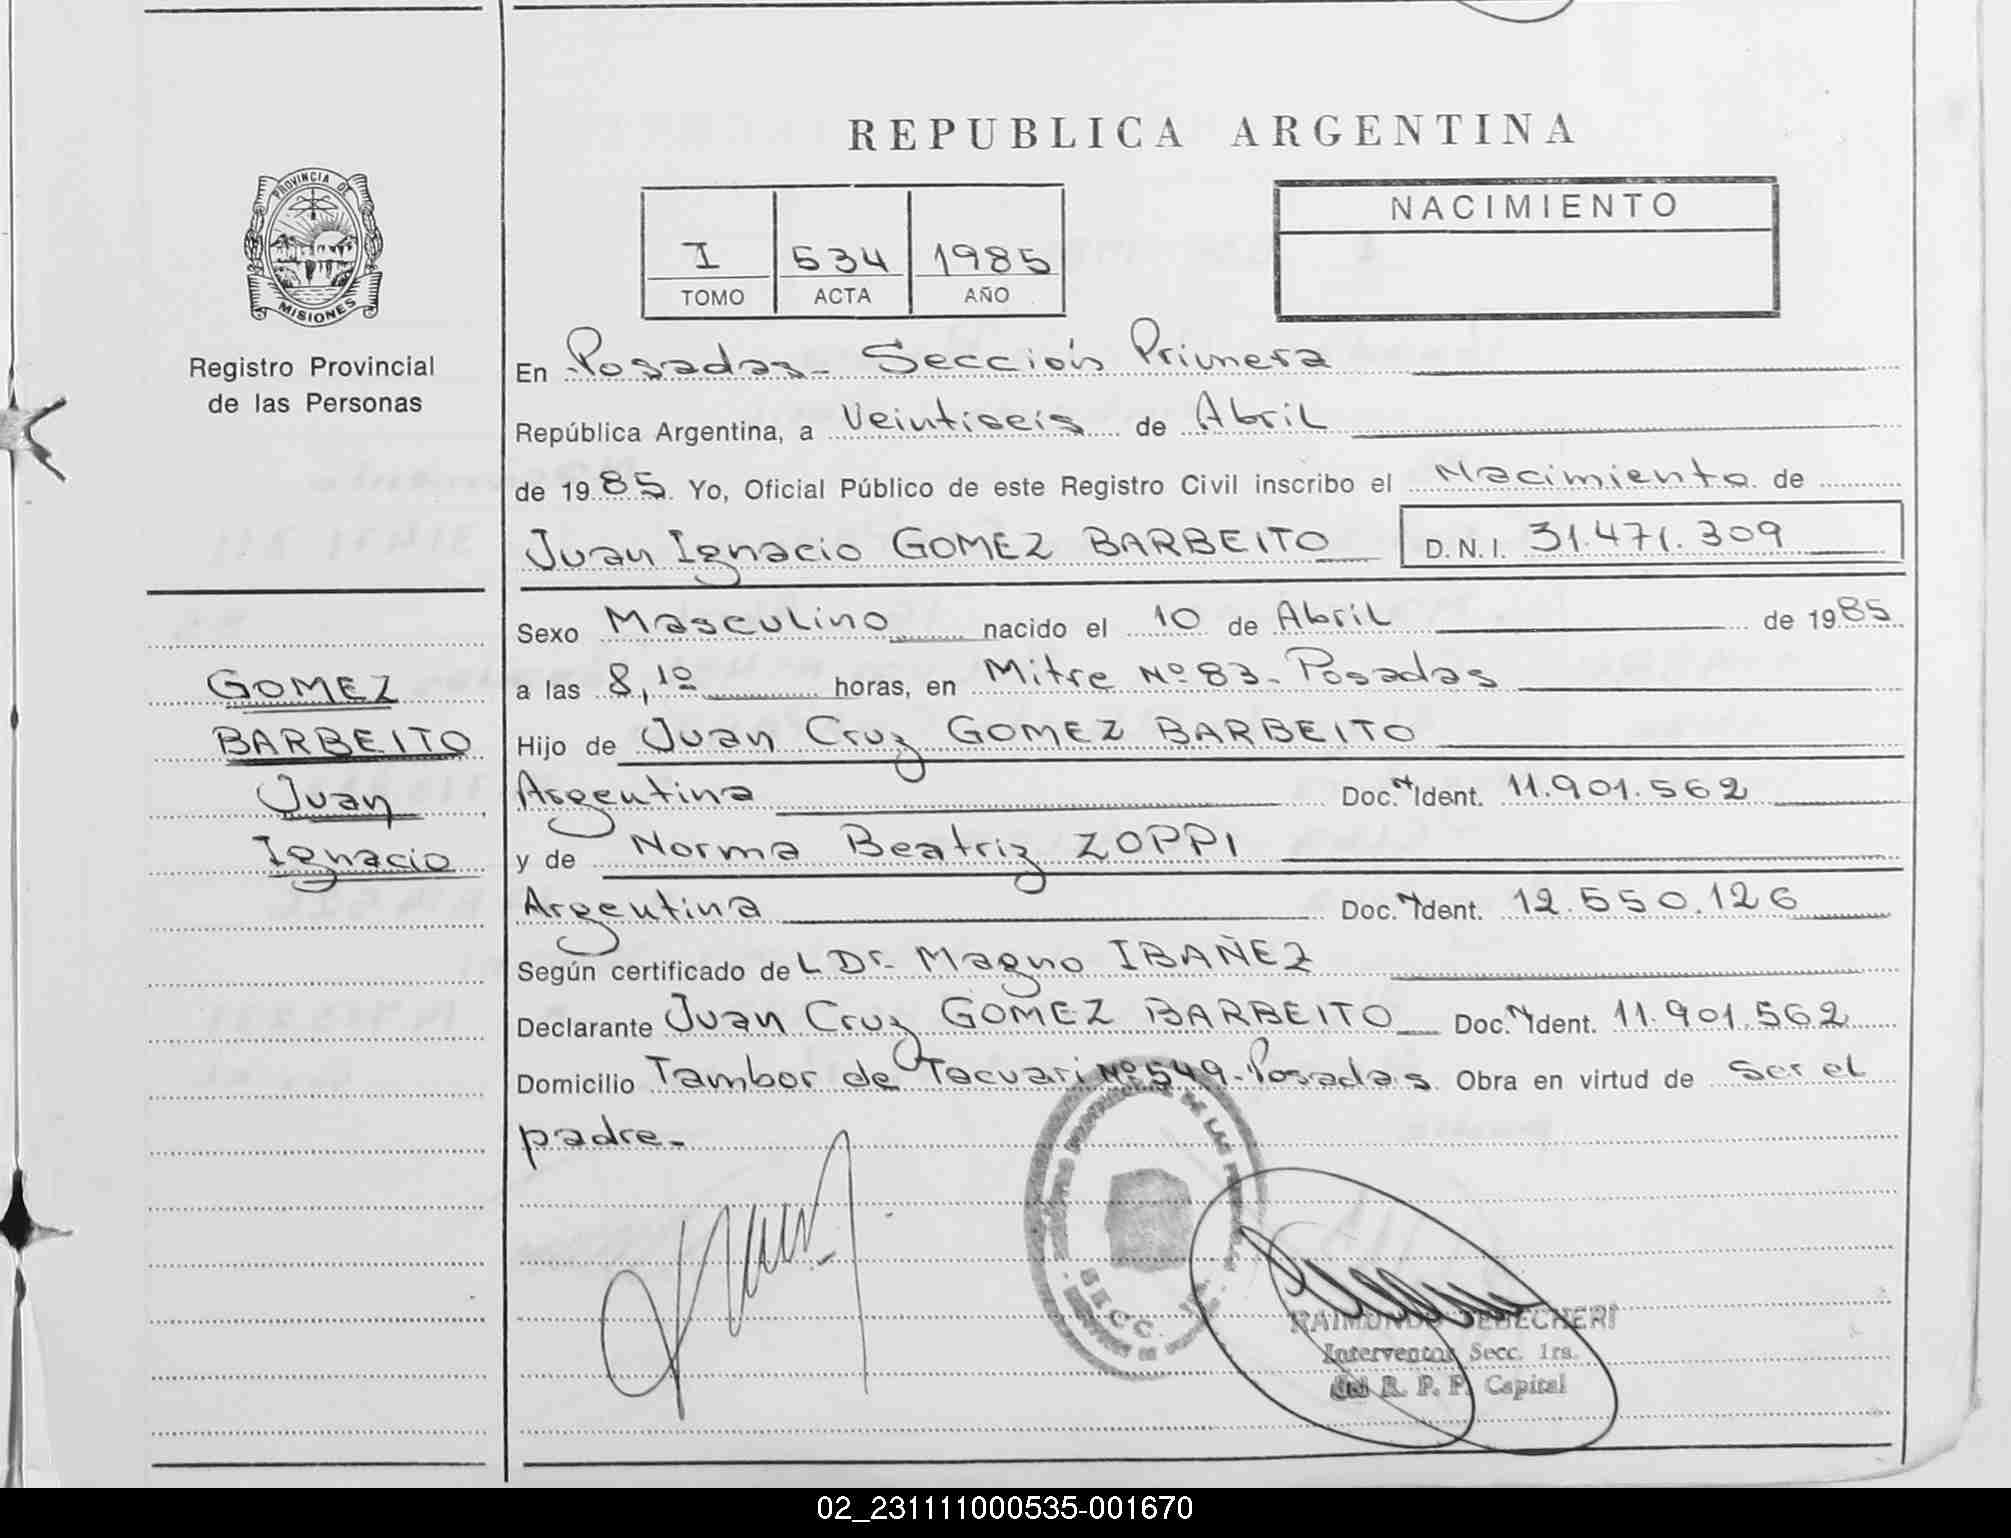 REPUBLICA ARGENTINA
PROVINCIA DE
MISIONES
Registro Provincial
de las Personas
I 534 1985
TOMO ACTA AÑO
NACIMIENTO
En Posadas- Sección Primera
República Argentina, a Veintiseis de Abril
de 1985. Yo, Oficial Público de este Registro Civil inscribo el Nacimiento de
Juan Ignacio GOMEZ BARBEITO D.N.I. 31.471.309
Sexo Masculino nacido el 10 de Abril de 1985
a las 8,10 horas, en Mitre Nº 83- Posadas
Hijo de Juan Cruz GOMEZ BARBEITO
Argentina Doc. N Ident. 11.901.562
y de Norma Beatriz ZOPPI
Argentina Doc. N Ident. 12.550.126
Según certificado del Dr. Magno IBAÑEZ
Declarante Juan Cruz GOMEZ BARBEITO Doc. N Ident. 11.901.562
Domicilio Tambor de Tacuari Nº 549-Posadas. Obra en virtud de Ser el
padre-
GOMEZ
BARBEITO
Juan
Ignacio
DE LAS
SECC.
RAIMUNDO
Interventor Secc. 1ra.
del R. P. P. Capital
02_231111000535-001670